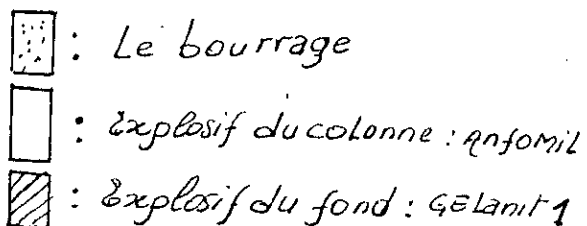 : Le bourrage
: Explosif du colonne : AnfoMiL
: Explosif du fond : GELanit 1